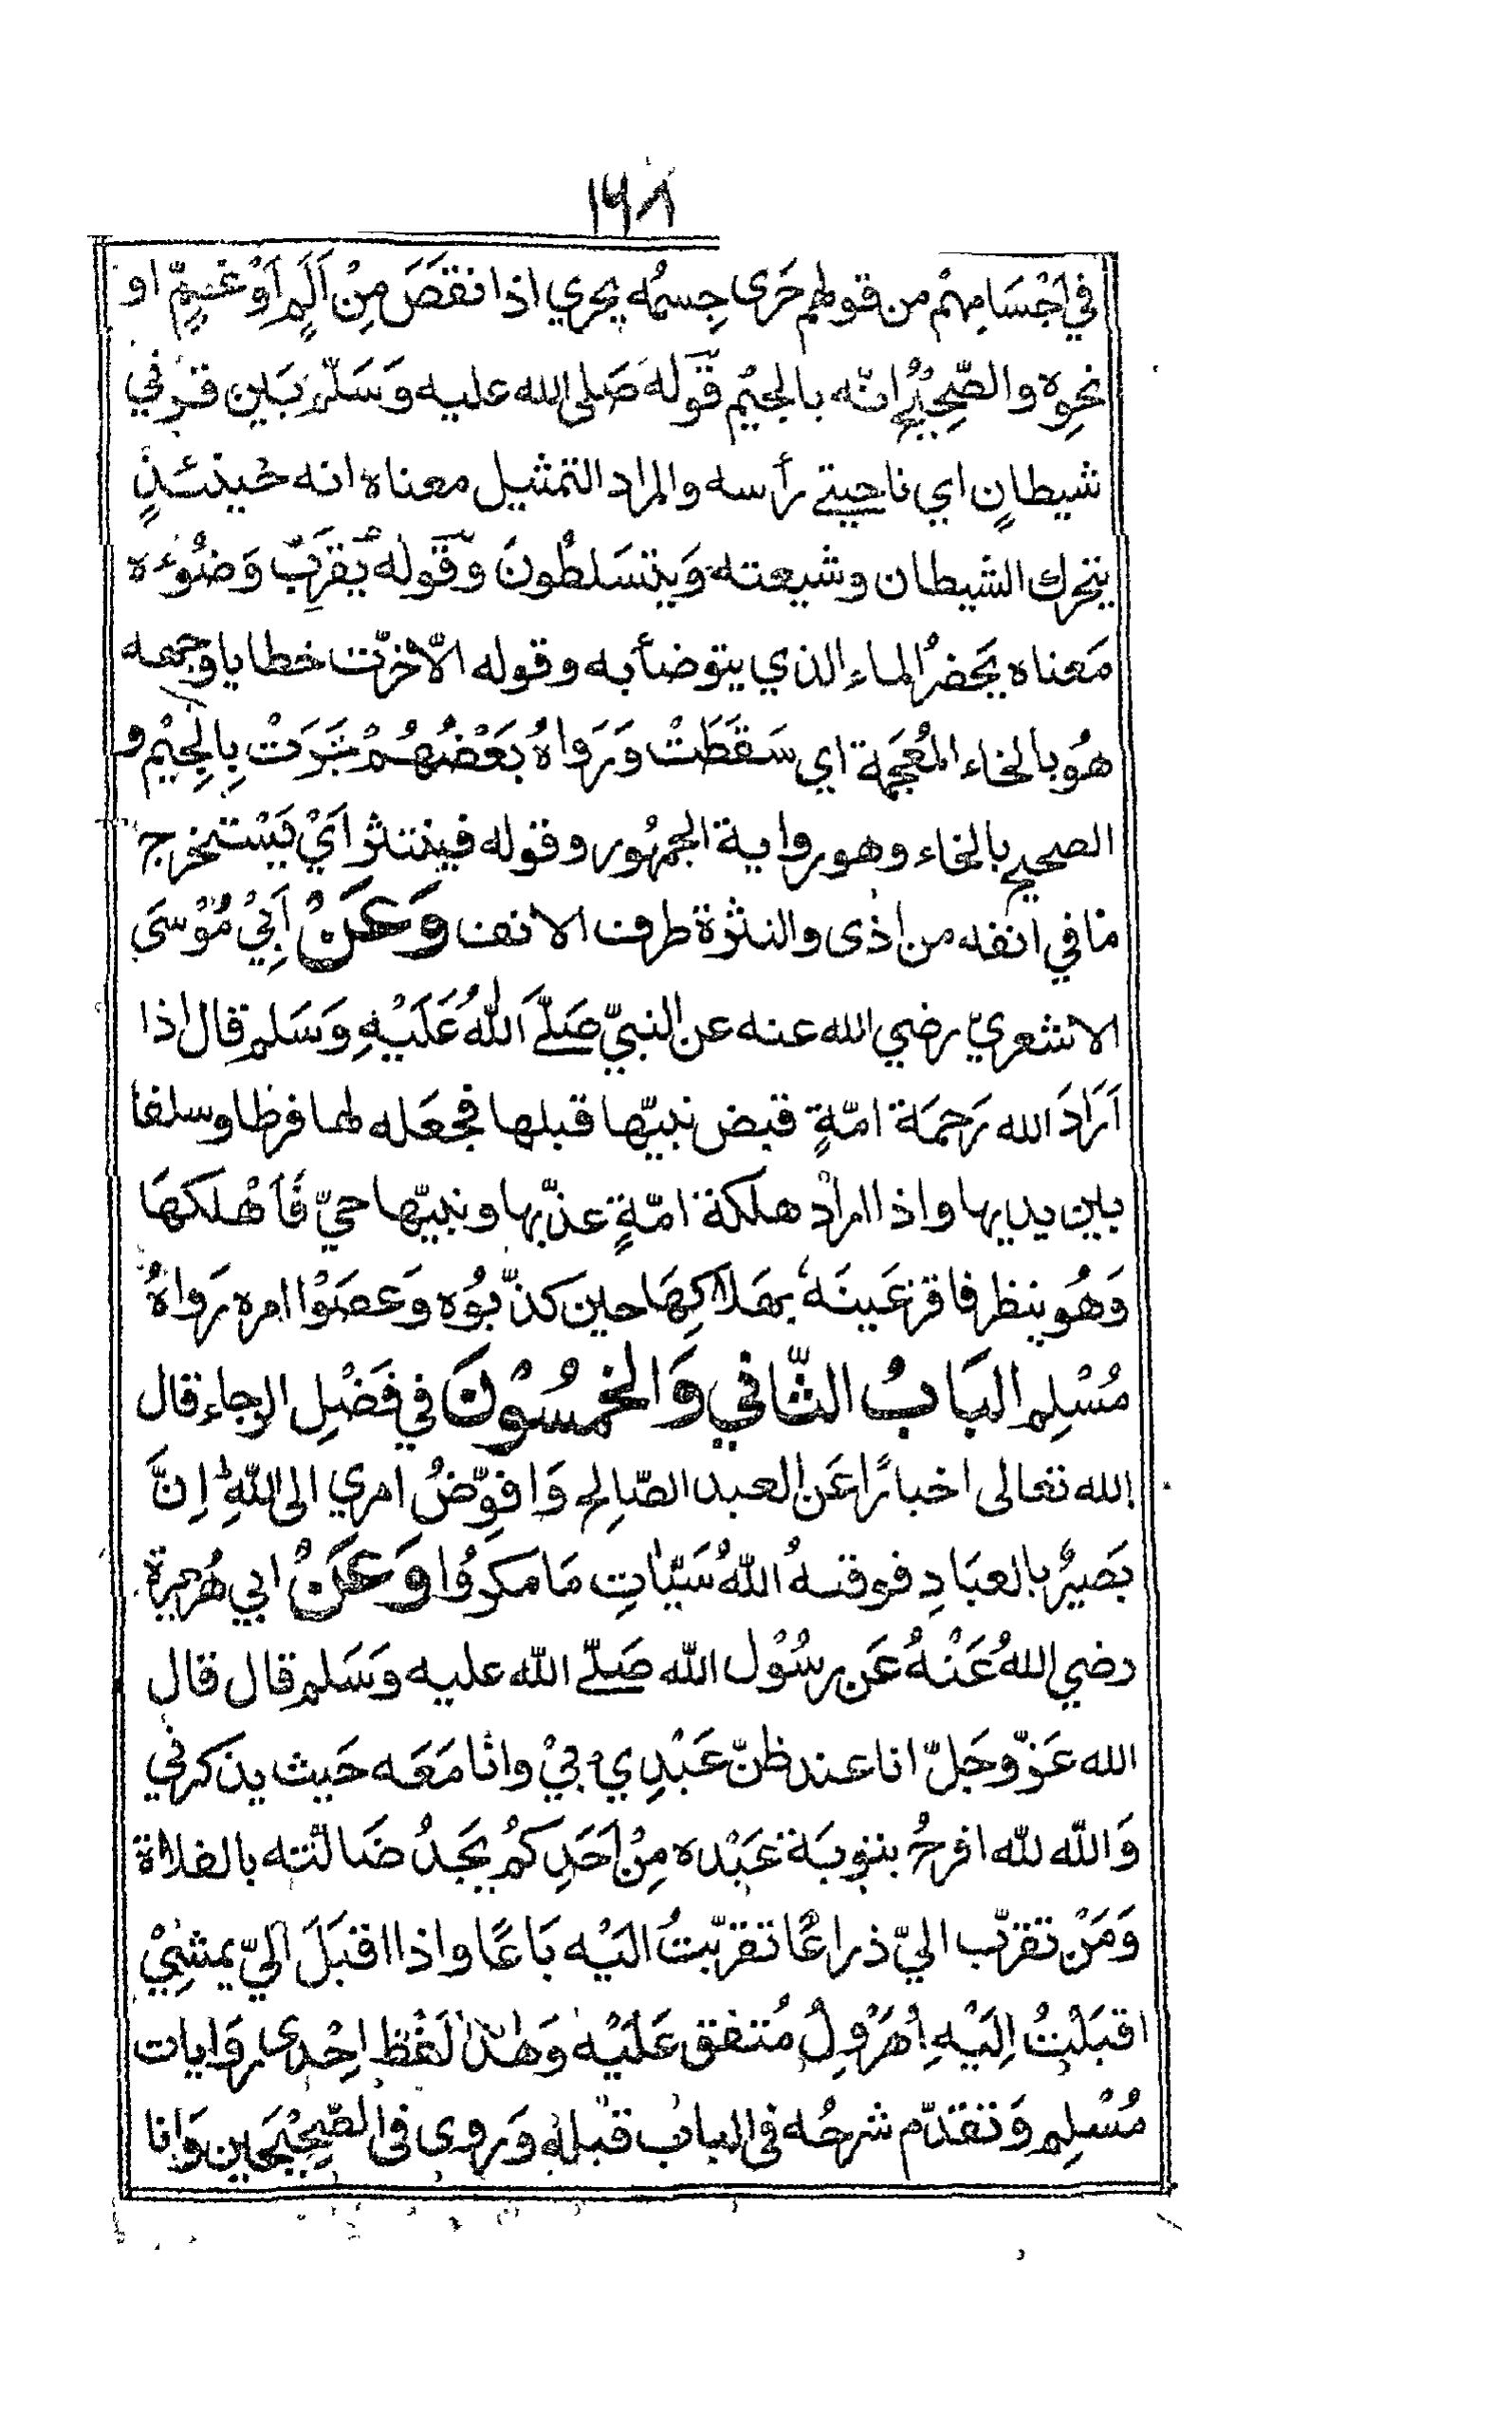 ١٦٨
في اَجْسَامِهِمْ من قولهم حَرَى جِسمُه يحري اذا نقَصَ مِنْ اَلَمٍ اَوْ غمٍّ او
نحوِه والصّحِيْحُ انّه بالجيْم قَوْله صَلى الله عليه وَسَلّم بَين قرني
شيطانٍ اي ناحيتے رأسه والمراد التمثيل معناه انه حينئذٍ
يتحرك الشيطان وشيعته وَيتسَلطُونَ وقَوله يُقرِّبُ وَضُوءه
مَعناه يحَضرُ الماء الذي يتوضأ به وقوله الّا خرّت خطايا وجهه
هُو بالخاء المُعْجَمة اي سَقَطَتْ وَرَواهُ بَعْضُهُمْ جَرَتْ بِالجِيْم و
الصحيح بالخاء وهو رواية الجمهُور وقوله فينتثر اَيْ يَسْتخرج
مَا في انفه من اذى والنثرة طرف الانف وَعَنْ اَبِيْ مُوْسىَ
الاشعريّ رضي الله عنه عن النبيّ صَلّے اللّٰهُ عَلَيْهِ وَسَلم قال اذا
اَرَادَ الله رَحمَة امّةٍ قبض نبيّها قبلها فجعَله لها فرطا وسلفا
بين يديها واذا اراد هلكة امّةٍ عذّبها ونبيّها حيّ فَاَهْلكهَا
وَهُو ينظر فاقرّ عَينَهٗ بهَلاكِهَا حين كذّبُوه وَعصَوْا امره رَواهُ
مُسْلِم البَابُ الثّاني وَالخمسُوْنَ في فَضْلِ الرجاء قال
الله تعالى اخبارًا عَن العبد الصّالِح وَافوِّضُ امري الى اللّٰهِ اِنَّ
بَصيرٌ بالعبَادِ فوقىهُ اللّٰهُ سَيّاٰتِ مَا مكرُوا وَعَنْ ابي هُريرة
رضي اللهُ عَنْهُ عَن رسُوْل الله صَلّے الله عليه وَسَلم قال قال
الله عَزّ وجَلّ انا عند ظنّ عَبْدِيْ بيْ وانا مَعَه حَيث يذكرني
وَاللّه للّه افرحُ بتوبَة عَبْده مِنْ اَحَدِكمُ يَجدُ ضَالّته بالفلاة
وَمَنْ تقرّب اليّ ذراعًا تقرّبتُ اليْه بَاعًا واذا اقبَلَ اليّ يمشِيْ
اقبَلتُ اِليْهِ اُهَرْوِلُ مُتفق عَلَيْه وَهٰذا لَفْظ اِحْدى روَايات
مُسْلِم وَتقدّم شرحُه في الباب قبْله وَروى في الصّحِيْحَين وَانا